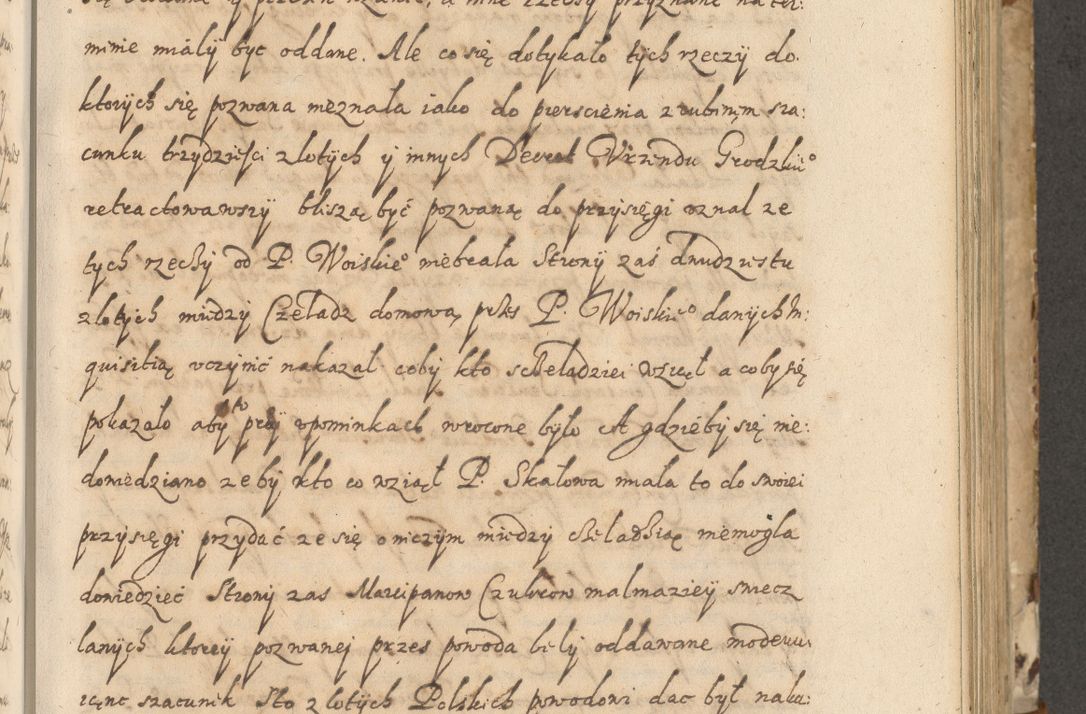 minie miały być oddane. Ale co się dotykało tych rzeczy do
ktorych się pozwana nieznała iako do pierscienia z rubinem sza:
cunku trzydziesci złotych y innych Decret Vrzendu Grodzkiego
retractowawszy bliszą być pozwaną do przysięgi uznał ze
tych rzeczy od P. Woiskiego niebrała Strony zaś dwudziestu
złotych miedzy Czeladz domową przes P. Woiskiego danych In:
quisitią uczynić nakazał coby kto sczeladziei wzięł a coby się
pokazało aby to przy upominkach wrocone było A gdzieby się nie:
dowiedziano zeby kto co wziął P. Skałowa miała to do swoiei
przysięgi przydać ze się oniczym miedzy czeladzią niemogła
dowiedzieć Strony zas Marcipanow Czukrow malmaziey swiecz
lanych ktorey pozwanej przes powoda beły oddawane moderu:
iąnc szacunek Sto złotych Polskich powodowi dac był naka: